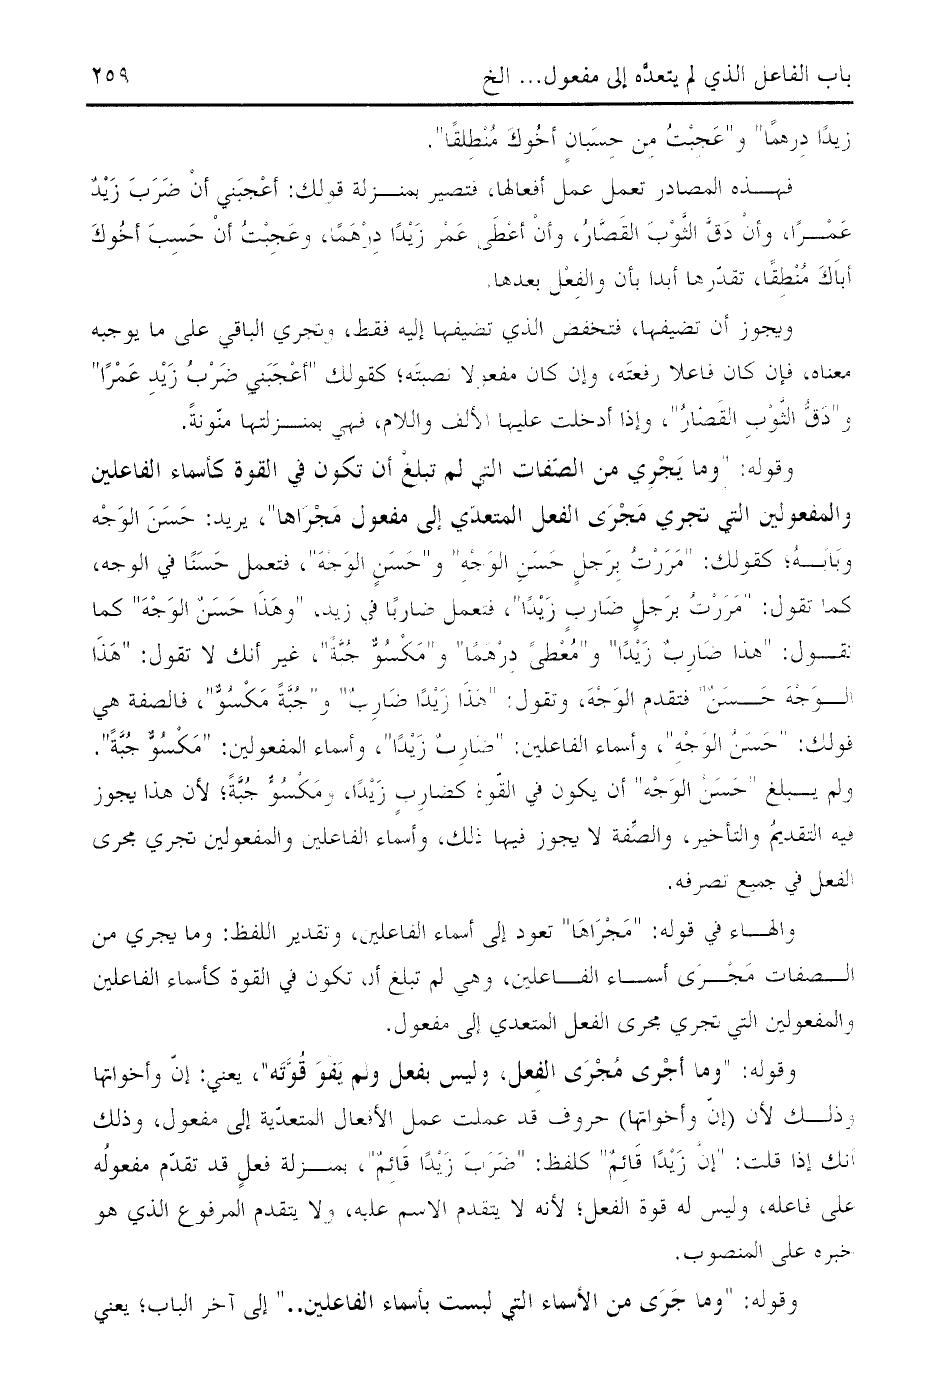 باب الفاعل الذي لم يتعدَّه إلى مفعول... الخ ٢٥٩
زيدًا دِرهمًا" و"عَجِبْتُ مِن حِسَبانٍ أخُوكَ مُنْطلقًا".
فهذه المصادر تعمل عمل أفعالها، فتصير بمنزلة قولك: أعْجبَني أنْ ضَرَبَ زَيْدٌ
عَمْرًا، وأنْ دَقَّ الثَّوْبَ القَصَّارُ، وأنْ أعْطَى عَمْر زَيْدًا دِرْهَمًا، وعَجِبْتُ أنْ حَسِبَ أخُوكَ
أبَاكَ مُنْطِقًا، تقدّرها أبدا بأن والفِعْل بعدها.
ويجوز أن تضيفها، فتخفض الذي تضيفها إليه فقط، وتجري الباقي على ما يوجبه
معناه، فإن كان فاعلا رفعته، وإن كان مفعولا نصبتَه؛ كقولك "أعْجَبَني ضَرْبُ زَيْدٍ عَمْرًا"
و"دَقُّ الثَّوْبِ القَصَّارُ"، وإذا أدخلت عليها الألف واللام، فهي بمنزلتها منّونةً.
وقوله: "وما يَجْرِي من الصّفات التي لم تبلغْ أن تكون في القوة كأسماء الفاعلين
والمفعولين التي تجري مَجْرَى الفعل المتعدّي إلى مفعول مَجْرَاها"، يريد: حَسَنَ الوَجْه
وبَابَهُ؛ كقولك: "مَرَرْتُ بِرَجلٍ حَسَنِ الوَجْهِ" و"حَسَنٍ الوَجْهَ"، فتعمل حَسَنًا في الوجه،
كما تقول: "مَرَرْتُ بِرَجلٍ ضَارِبٍ زَيْدًا"، فتعمل ضاربًا في زيد. "وهَذَا حَسَنٌ الوَجْهَ" كما
تقول: "هذا ضَارِبٌ زَيْدًا" و"مُعْطىً دِرْهَمًا" و"مَكْسُوٌّ جُبَّةً"، غير أنك لا تقول: "هَذَا
الوَجْهَ حَسَنٌ" فتقدم الوَجْهَ، وتقول: "هَذَا زَيْدًا ضَارِبٌ" و"جُبَّةً مَكْسُوٌّ"، فالصفة هي
قولك: "حَسَنُ الوَجْهِ"، وأسماء الفاعلين: "ضَارِبٌ زَيْدًا"، وأسماء المفعولين: "مَكْسُوٌّ جُبَّةً".
ولم يبلغ "حَسَنُ الوَجْه" أن يكون في القّوة كضَاربٍ زَيْدًا، ومَكْسُوٍّ جُبَّةً؛ لأن هذا يجوز
فيه التقديمُ والتأخير، والصِّفة لا يجوز فيها ذلك، وأسماء الفاعلين والمفعولين تجري مجرى
الفعل في جميع تصرفه.
والهاء في قوله: "مَجْرَاهَا" تعود إلى أسماء الفاعلين، وتقدير اللفظ: وما يجري من
الصفات مَجْرَى أسماء الفاعلين، وهي لم تبلغ أن تكون في القوة كأسماء الفاعلين
والمفعولين التي تجري مجرى الفعل المتعدي إلى مفعول.
وقوله: "وما أجْرى مُجْرَى الفعل، وليس بفعل ولم يَقْوَ قُوَّتَه"، يعني: إنّ وأخواتها
وذلك لأن (إنّ وأخواتها) حروف قد عملت عمل الأفعال المتعدّية إلى مفعول، وذلك
أنك إذا قلت: "إنّ زَيْدًا قَائِمٌ" كلفظ: "ضَرَبَ زَيْدًا قَائِمٌ"، بمنزلة فعلٍ قد تقدّم مفعولُه
على فاعله، وليس له قوة الفعل؛ لأنه لا يتقدم الاسم عليه، ولا يتقدم المرفوع الذي هو
خبره على المنصوب.
وقوله: "وما جَرَى من الأسماء التي ليست بأسماء الفاعلين.." إلى آخر الباب؛ يعني